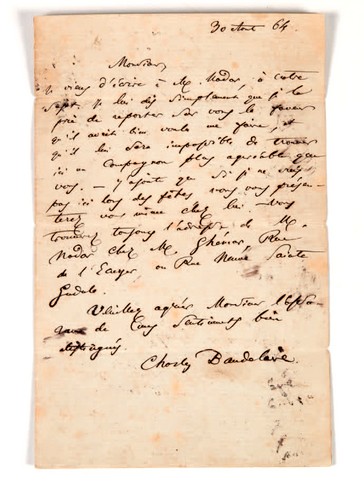 30 Août 64.
Monsieur,
Je viens d'écrire à M. Nadar, à votre
sujet. Je lui dis simplement que je le
prie de reporter sur vous la faveur
qu'il avait bien voulu me faire, et
qu'il lui sera impossible de trouver
ici un compagnon plus agréable que
vous. — J'ajoute que si je ne suis
pas ici lors des fêtes vous vous présen-
terez vous même chez lui. Vous
trouverez toujours l'adresse de M.
Nadar chez M. Ghémar, Rue
de l'Ecuyer ou Rue Neuve Sainte
Gudule.
Veuillez agréer Monsieur l'assu
rance de mes sentiments bien
distingués.
Charles Baudelaire.